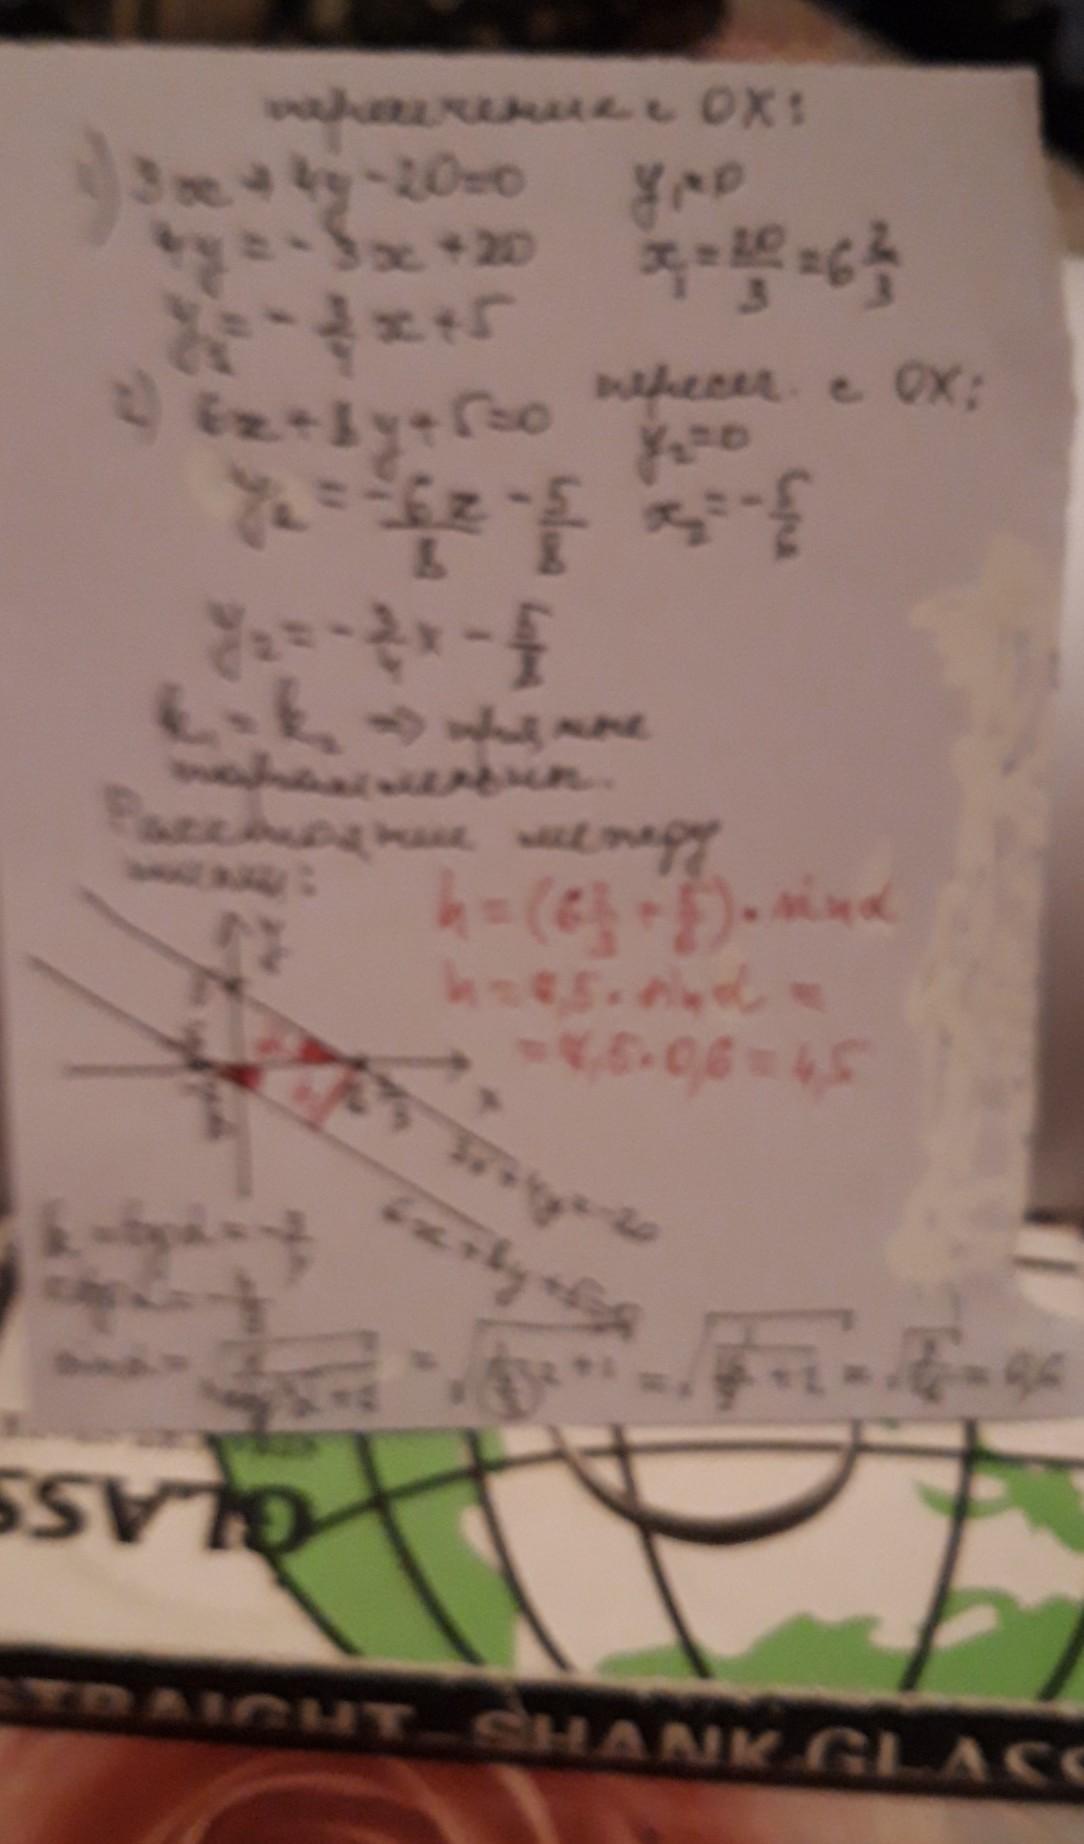 пересечение с OX:
1) 3x + 4y - 20 = 0
y₁ = 0
4y = -3x + 20
x₁ = 20/3 = 6 2/3
y₁ = -3/4 x + 5
2) 6x + 8y + 5 = 0
пересеч. с OX:
y₂ = 0
y₂ = -6x/8 - 5/8
x₂ = -5/6
y₂ = -3/4 x - 5/8
k₁ = k₂ ⇒ прямые
параллельны.
Расстояние между
ними:
h = (6 2/3 + 5/6) · sin α
h = 7,5 · sin α =
= 7,5 · 0,6 = 4,5
y
x
6x + 8y + 5 = 0
k = tg α = -3/4
= 0,6
GLASS
STRAIGHT-SHANK GLASS